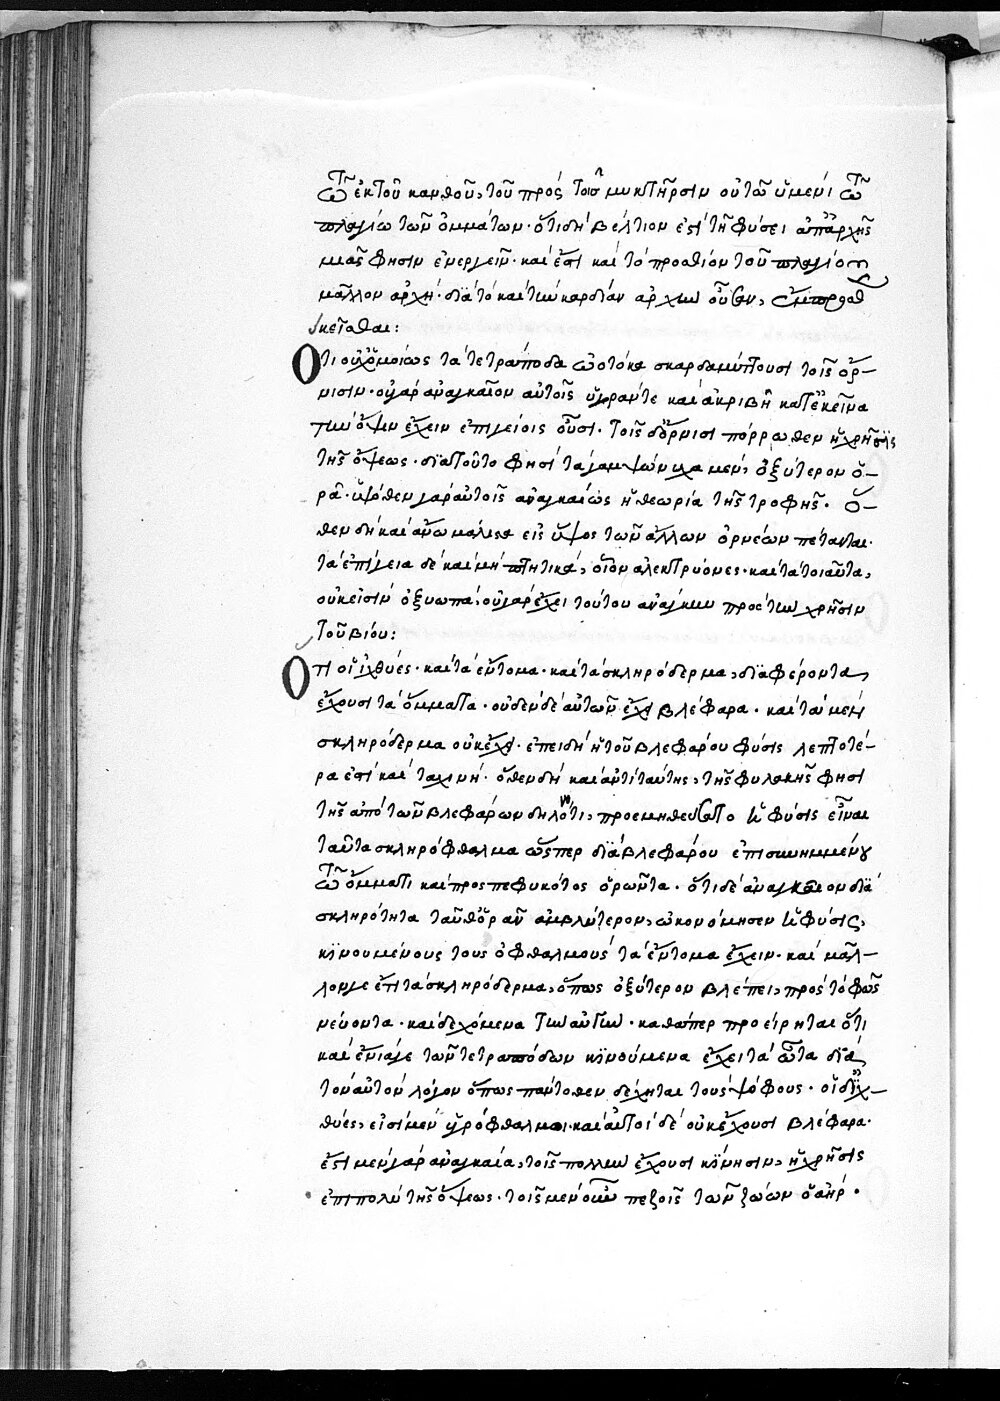 τῶ ἐκ τοῦ κανθοῦ, τοῦ πρὸς τοῖς μυκτῆρσιν οὕτω ὑμένι τῶ
πλαγίω τῶν ὀμμάτων. ὅτι δὴ βέλτιον ἐστὶ τῇ φύσει ἀπ' ἀρχῆς
μιᾶς φησιν ἐνεργεῖν. καὶ ἔστι καὶ τὸ πρόσθιον τοῦ πλαγίου
μᾶλλον ἀρχή. διὰ τὸ καὶ τὴν καρδίαν ἀρχὴν οὖσαν, ἔμπροσθεν
κεῖσθαι:
Ὅτι οὐχ ὁμοίως τὰ τετράποδα ὠοτόκα σκαρδαμύττουσι τοῖς ὄρ-
νισιν. οὐ γὰρ ἀναγκαῖον αὐτοῖς ὑγράν τε καὶ ἀκριβῆ κατ' ἐκεῖνα
τὴν ὄψιν ἔχειν ἐπιγείοις οὖσι. τοῖς δ' ὄρνισι πόρρωθεν ἡ χρῆσις
τῆς ὄψεως. διὰ τοῦτο φησὶ τὰ γαμψώνυχα μὲν, ὀξύτερον ὁ-
ρᾶ. ὑψόθεν γὰρ αὐτοῖς ἀναγκαίως ἡ θεωρία τῆς τροφῆς. ὅ-
θεν δὴ καὶ ἄνω μάλιστα εἰς ὕψος τῶν ἄλλων ὀρνέων πέτανται.
τὰ ἐπίγεια δὲ καὶ μὴ πτητικά, οἷον ἀλεκτρυόνες. καὶ τὰ τοιαῦτα,
οὐκ εἰσὶν ὀξυωπά, οὐ γὰρ ἔχει τούτου ἀνάγκην πρὸς τὴν χρῆσιν
τοῦ βίου:
Ὅτι οἱ ἰχθύες. καὶ τὰ ἔντομα. καὶ τὰ σκληρόδερμα, διαφέροντα
ἔχουσι τὰ ὄμματα. οὐδὲν δὲ αὐτῶν ἔχει βλέφαρα. καὶ τὰ μὲν
σκληρόδερμα οὐκ ἔχει. ἐπειδὴ ἡ τοῦ βλεφάρου φύσις λεπτοτέ-
ρα ἐστὶ καὶ ταχινή. ὅθεν δὴ καὶ ἀντὶ ταύτης, τῆς φυλακῆς φησι
τῆς ἀπὸ τῶν βλεφάρων δηλονότι, προεμηθεύσατο ἡ φύσις εἶναι
ταῦτα σκληρόφθαλμα ὥσπερ διὰ βλεφάρου ἐπισκημμένου
τῶ ὄμματι καὶ προσπεφυκότος ὁρῶντα. ὅτι δὲ ἀναγκαῖον διὰ
σκληρότητα ταύτῃ ὁρᾶν ἀμβλύτερον, ὠκονόμησεν ἡ φύσις,
κινουμένους τοὺς ὀφθαλμοὺς τὰ ἔντομα ἔχειν. καὶ μᾶλ-
λον γε ἔτι τὰ σκληρόδερμα, ὅπως ὀξύτερον βλέπει, πρὸς τὸ φῶς
νεύοντα. καὶ δεχόμενα τὴν αὐγήν. καθάπερ προείρηται ὅτι
καὶ ἔνιά γε τῶν τετραπόδων κινούμενα ἔχει τὰ ὦτα διὰ
τὸν αὐτὸν λόγον ὅπως πάντοθεν δέχηται τοὺς ψόφους. οἱ δ' ἰχ-
θύες, εἰσὶ μὲν ὑγρόφθαλμοι. καὶ αὐτοὶ δὲ οὐκ ἔχουσι βλέφαρα.
ἔστι μὲν γὰρ ἀναγκαία, τοῖς πολλὴν ἔχουσι κίνησιν, ἡ χρῆσις
ἐπιπολὺ τῆς ὄψεως. τοῖς μὲν οὖν πεζοῖς τῶν ζώων ὁ ἀὴρ.